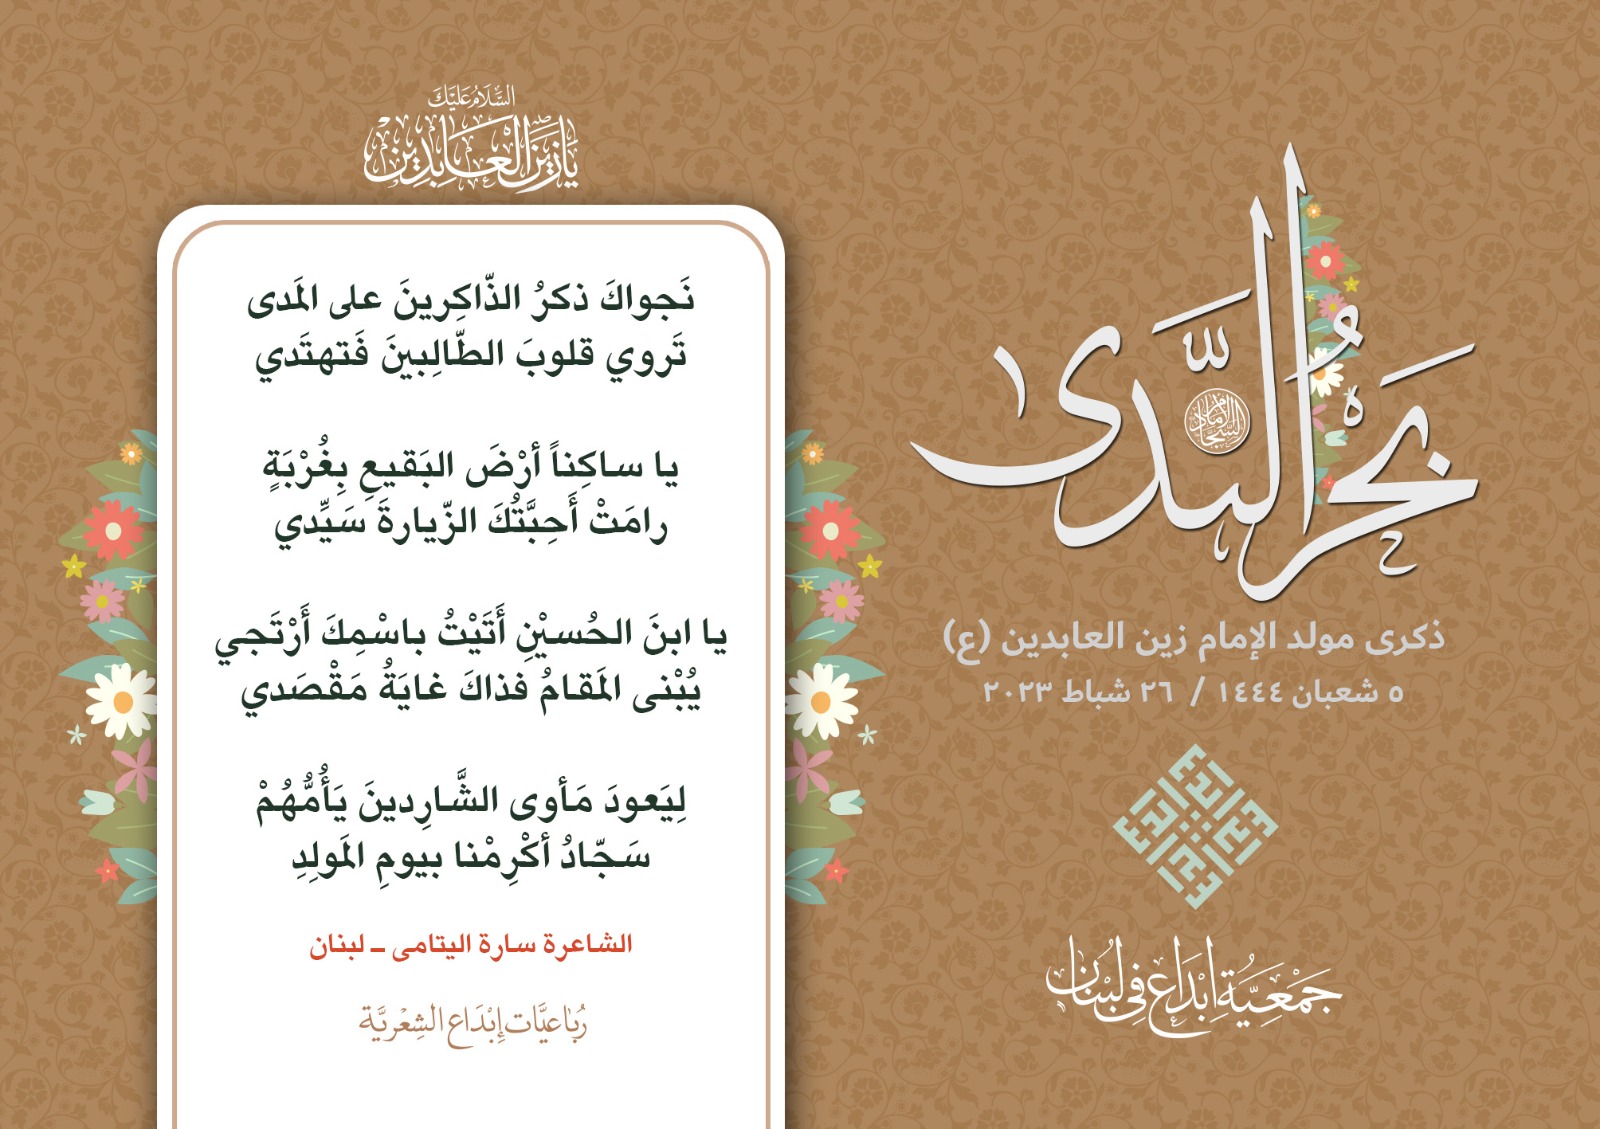 بَحْرُ النَّدى
الإمام السجّاد
ذكرى مولد الإمام زين العابدين (ع)
٥ شعبان ١٤٤٤ / ٢٦ شباط ٢٠٢٣
إبداع
جَمْعِيَّة إبْدَاع فِي لبْنَان
السَّلَامُ عَلَيْكَ
يَا زَيْنَ الْعَابِدِين
نَجواكَ ذكرُ الذّاكِرينَ على المَدى
تَروي قلوبَ الطّالِبينَ فَتهتَدي
يا ساكِناً أرْضَ البَقيعِ بِغُرْبَةٍ
رامَتْ أَحِبَّتُكَ الزّيارةَ سَيِّدي
يا ابنَ الحُسيْنِ أَتَيْتُ باسْمِكَ أَرْتَجي
يُبْنى المَقامُ فذاكَ غايَةُ مَقْصَدي
لِيَعودَ مَأوى الشَّارِدينَ يَأُمُّهُمْ
سَجّادُ أكْرِمْنا بيومِ المَولِدِ
الشاعرة سارة اليتامى ـ لبنان
رُبَاعيَّات إبْدَاع الشِعْريَّة